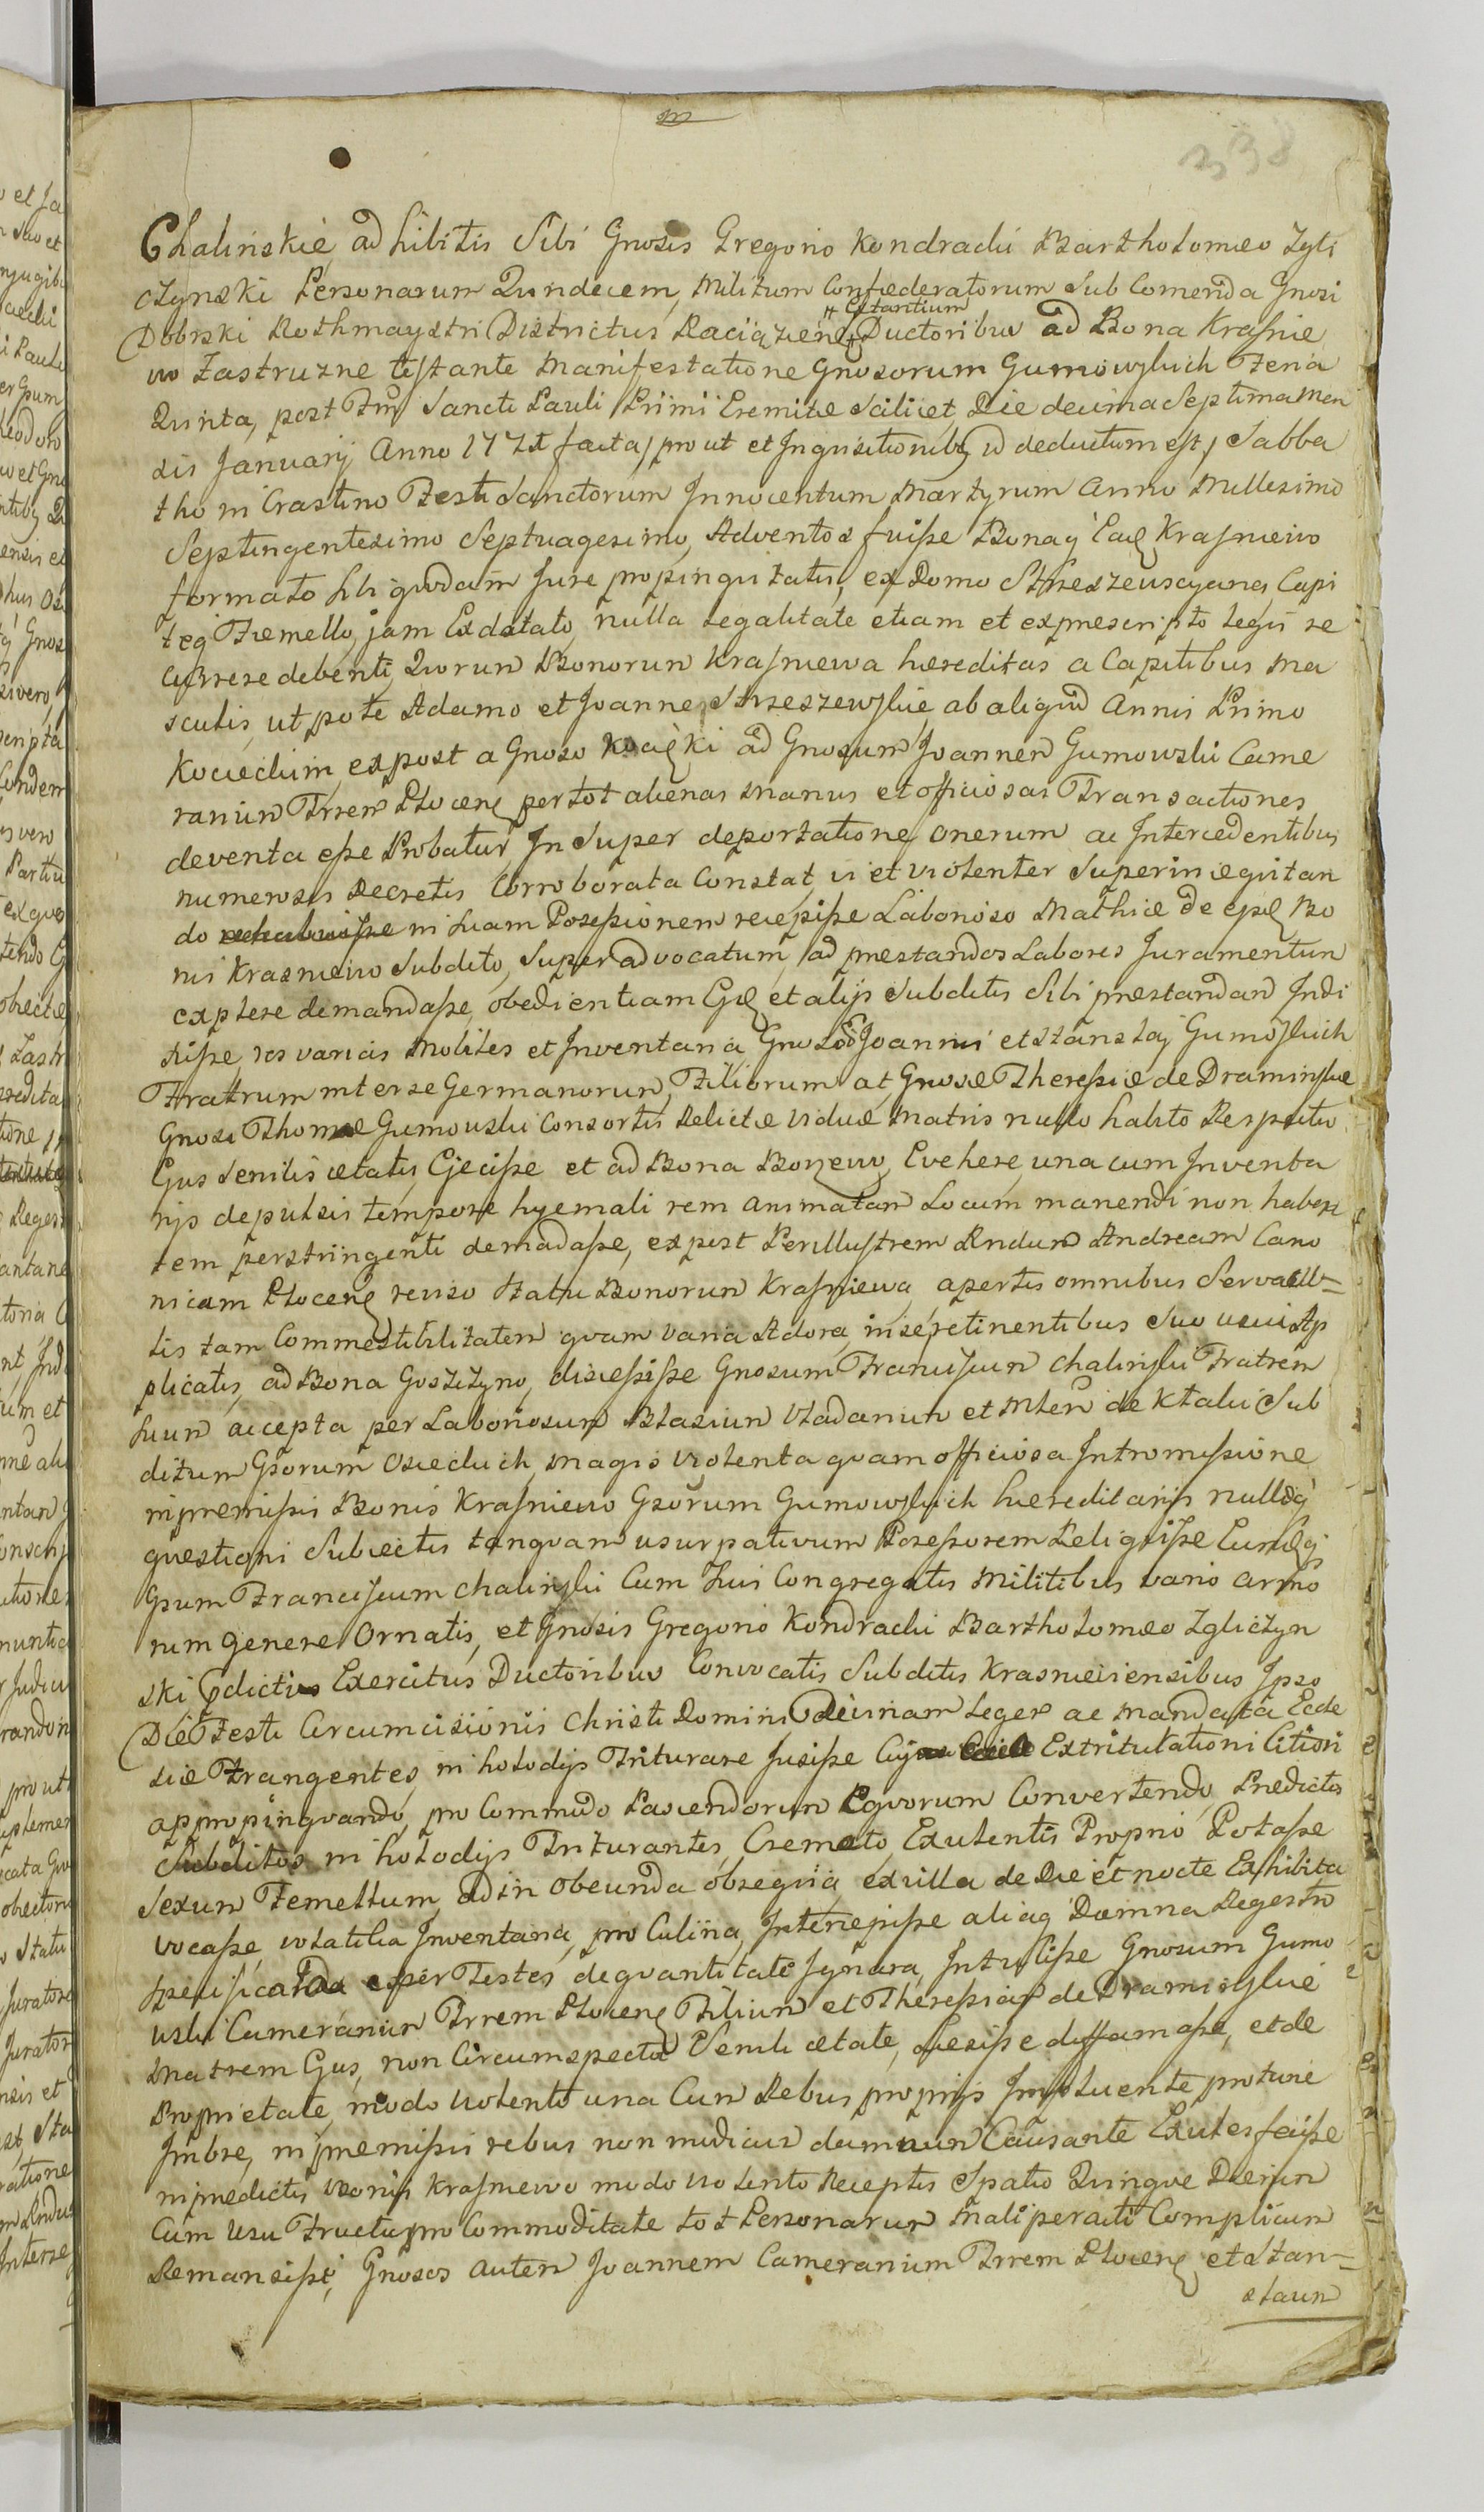 m
338
Chalińskie adhibitis Sibi Gnosis Gregorio Kondracki Bartholomæo Zgli
czynski Personarum Quindecem, Militum Confœderatorum Sub Comenda Gnosi
# Extantium
Dobrski Rothmaystri Districtus Raciązien # Ductoribus ad Bona Krasnie
wo Zastruzne testante Manifestatione Gnosorum Gumowskich Feria
Quinta, post Ftm Sancti Pauli Primi Eremitæ Scilicet Die decima Septima Men
sis January Anno 1771 facta / prout et Inqusitionibq id deductum est / Sabba
tho in Crastino Festi Sanctorum Innocentum Martyrum Anno Millesimo
Septingentesimo Septuagesimo, Adventos fuisse Bonaq Eaq Krasniewo
formato Sibi quodam Jure propinquitatis, ex Domo Strzeszewscyana Capi
teq Fæmello, jam Exdotato, nulla legalitate etiam et exprescripto legis se
cerrere debenti, Quorum Bonorum Krasniewa hæreditas a Capitibus ma
sculis, utpote Adamo et Joanne Strzeszewskie, ab aliquod Annis Primo
Kocieckim, expost a Gnoso Kocięcki ad Gnosum Joannem Gumowski Came
rariun Trrem Plocenę per tot alienas manus et officiosas Transactiones
deventa esse Probatur, In Super deportatione onerum ac Intercedentibus
numerosis Decretis Corroborata Constat, vi et violenter Superinæquitan
do in suam Possessionem recepisse Laborioso Mathiæ de ejsd Bo
nis Krasniewo Subdito, Super advocatum, ad præstandos Labores Juramentum
explere demandasse, obedientiam Eiq et alijs Subditis Sibi præstandam Indi
xisse, res varias Mobiles et Inventaria, Gnosor Joannis et Stanslaj Gumoskich
Fratrum inter se Germanorum, Filiorum at Gnosæ Theressiæ de Draminskie
Gnosi Thomæ Gumowski Consortis Relictæ Viduæ Matris nullo habito Respectu
Ejus Senilis ætatis, Ejecisse et ad Bona Bonzewo, Evehere, una cum Inventa
rijs depulsis tempore hyemali rem animatam Locum manendi non haben
tem perstringenti demadasse, expost Perillustrem Rndum Andream Cano
nicum Plocenę reviso Statu Bonorum Krasniewa, apertis omnibus Servacu=
lis tam Commestibilitatem quam varia Adora, in se retinentibus Suo usui Ap
plicatis, ad Bona Goszczyno, discessisse Gnosum Franciscum Chalinski Fratrem
suun accepta per Laboriosum Blasium Wladarium et Mlen de Ktalu Sub
ditum Gsorum Osieckich magis violenta quam officiosa Intromissione
in premissis Bonis Krasniewo Gsorum Gumowskich hæreditarijs nulloq
questioni Subiectis tanquam usurpativum Possessorem Reliquisse Eundeq
Gsum Franciscum Chalinski Cum suis Congregatis Militibus vario armo
rum genere Ornatis, et Gnosis Gregorio Kondracki Bartholomæo Zgliczyn
ski pdictis Exercitus Ductoribus Convocatis Subditis Krasnieviensibus Ipso
Die Festi Circumcisionis Christi Domini Divinam Legem ac mandata Eccle
siæ Frangentes, in hotodijs Triturare Jusisse Extritutationi Citiori
appropinquando, pro Commodo Pascendorum Equorum Convertendo, Predictos
Subditos in hotodijs Triturantes, Cremato, Exulentis Proprio Potasse
Sexum Femellum, ad in obeunda obsequia, ex villa de Die et nocte Exhibita
vocasse, volatilia Inventaria, pro Culina, Interiepisse, aliaq Damna Regestro
specificanda exper Testes de quantitate Ignara, Intulisse Gnosum Gumo
wski Camerarium Trrem Plocenę Filium et Theressiam de Draminskie
Matrem Ejus, non Circumspecta Senili ætate, Læsisse diffamasse, et de
Proprietate, modo violento una Cum Rebus proprijs Impluente protunc
Imbre, in premissis rebus non medicum damnum Causante Exules fecisse
in predictis Bonis Krasniewo modo violento Receptis Spatio Quinque Dierum
Cum Usu Fructu pro Commoditate tot Personarum Mali peracti Complicum
Remansisse, Gnosos autem Joannem Camerarium Trrem Plocenę et Stan=
staum